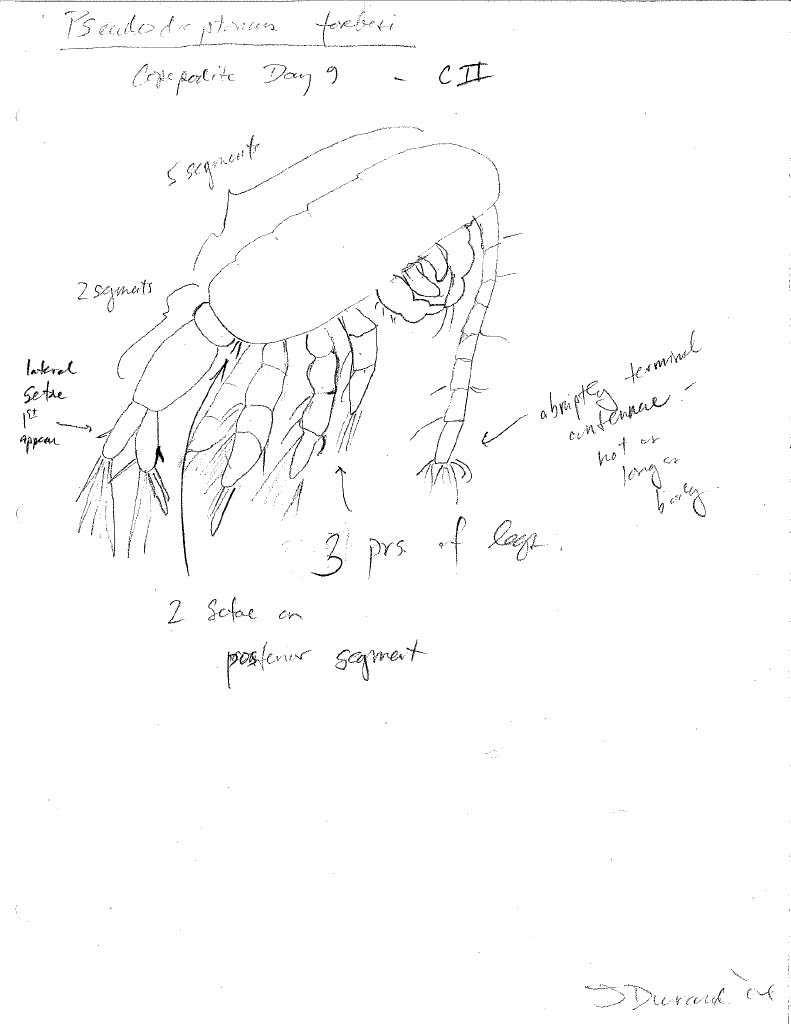 Pseudodiaptomus forbesi
Copepodite Day 9 - CII
5 segments
2 segments
lateral
setae
1st
appear
abruptly terminal
antennae -
not as
long as
body.
3 prs. of legs.
2 Setae on
posterior segment
J Durand '04